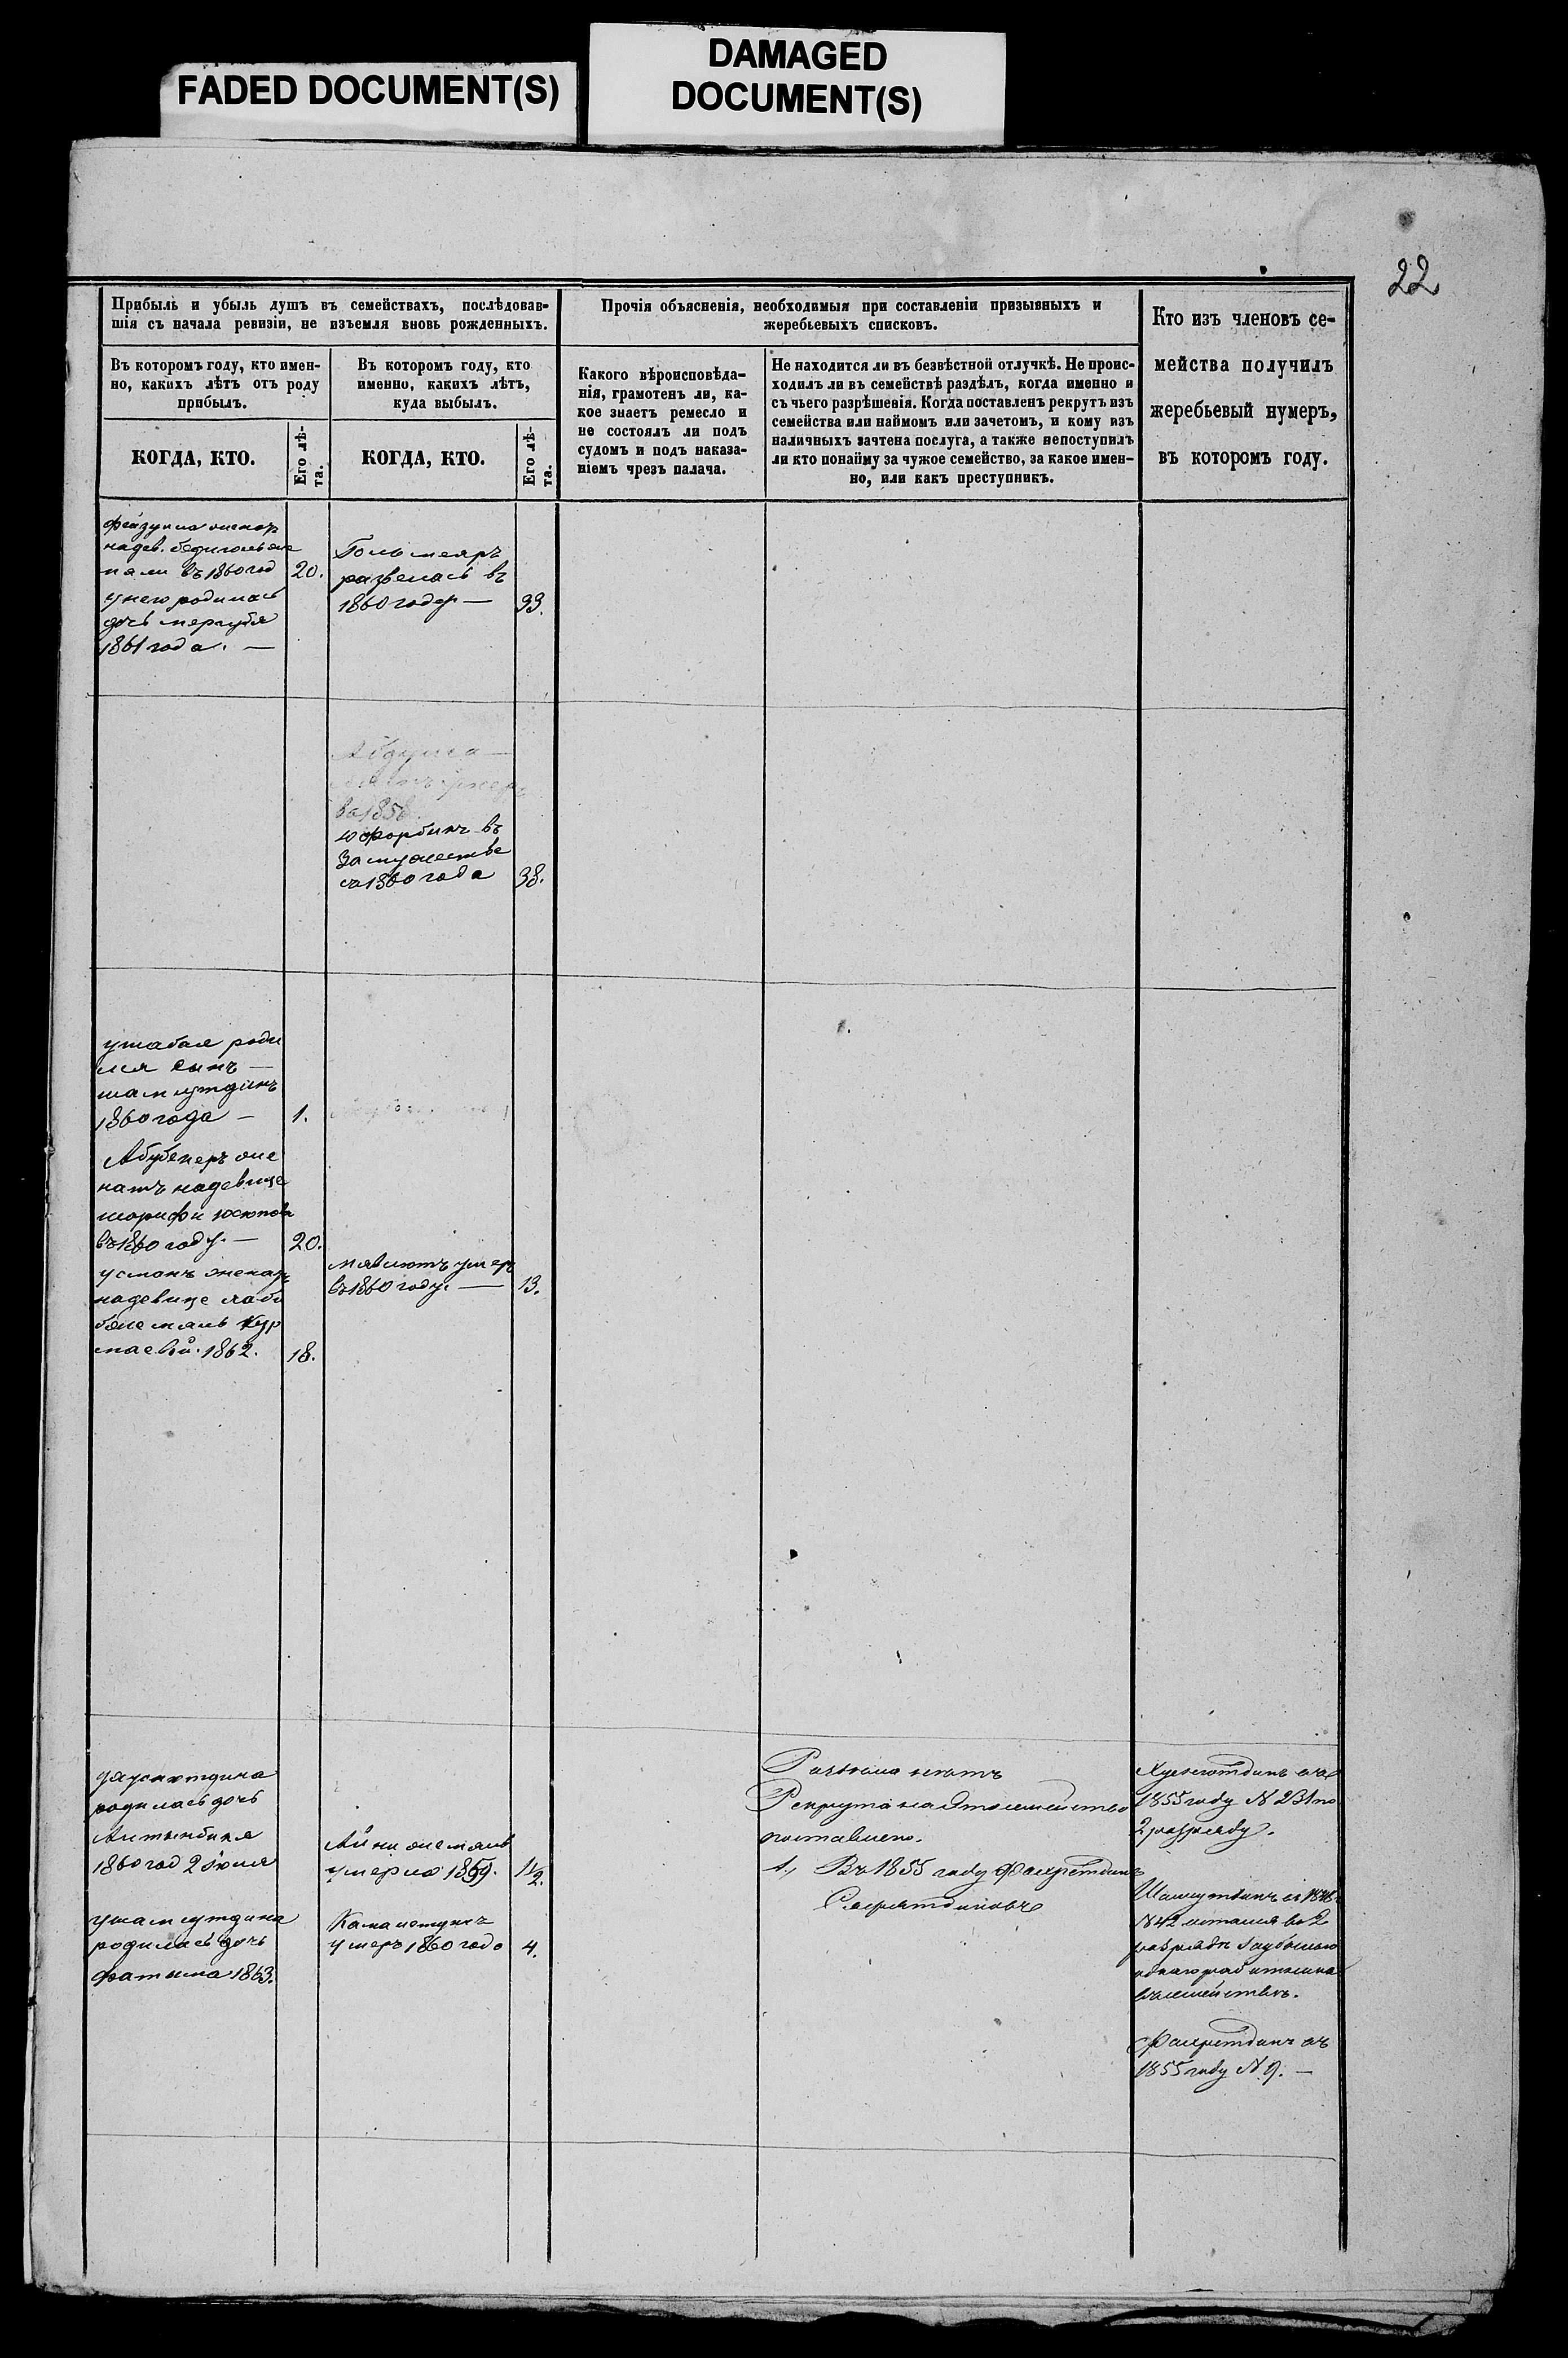 FADED DOCUMENT(S)
DAMAGED
DOCUMENT(S)
22
Прибыль и убыль душъ въ семействахъ, послѣдовав-
шія съ начала ревизіи, не изъемля вновь рожденныхъ.
Въ которомъ году, кто имен-
но, какихъ лѣтъ отъ роду
прибылъ.
Въ которомъ году, кто
именно, какихъ лѣтъ,
куда выбылъ.
КОГДА, КТО.
Его лѣ-
та.
КОГДА, КТО.
Его лѣ-
та.
Прочія объясненія, необходимыя при составленіи призывныхъ и
жеребьевыхъ списковъ.
Какого вѣроисповѣда-
нія, грамотенъ ли, ка-
кое знаетъ ремесло и
не состоялъ ли подъ
судомъ и подъ наказа-
ніемъ чрезъ палача.
Не находится ли въ безвѣстной отлучкѣ. Не проис-
ходилъ ли въ семействѣ раздѣлъ, когда именно и
съ чьего разрѣшенія. Когда поставленъ рекрутъ изъ
семейства или наймомъ или зачетомъ, и кому изъ
наличныхъ зачтена послуга, а также непоступилъ
ли кто понайму за чужое семейство, за какое имен-
но, или какъ преступникъ.
Кто изъ членовъ се-
мейства получилъ
жеребьевый нумеръ,
въ которомъ году.
надев.
въ 1860 год 20.
у него родилась
дочь
1861 года. —
развелась въ
1860 году — 33.
в 1856
въ
Замужестве
съ 1860 года 38.
роди
лся сынъ —
шамлутдинъ
1860 года — 1.
Абубекеръ же
натъ на девице
шарифи юсупова
въ 1860 году. — 20.
усманъ женатъ
на девице
маевой. 1862. 18.
умеръ
въ 1860 году. — 13.
родилась дочь
Алтынбика
1860 год 2 июля
у шамлутдина
родилась дочь
фатыма 1863.
умерла 1859. 1½.
умеръ 1860 года 4.
Рекрута на это семейство
поставлено.
1., Въ 1855 году Фахретдинъ
въ
1855 году N 231 по
2 разряду.
Шамлутдинъ въ 1848
N 42 остался во 2
разряде за убылью
одного работника
въ семействе.
Фахретдинъ въ
1855 году N 9. —